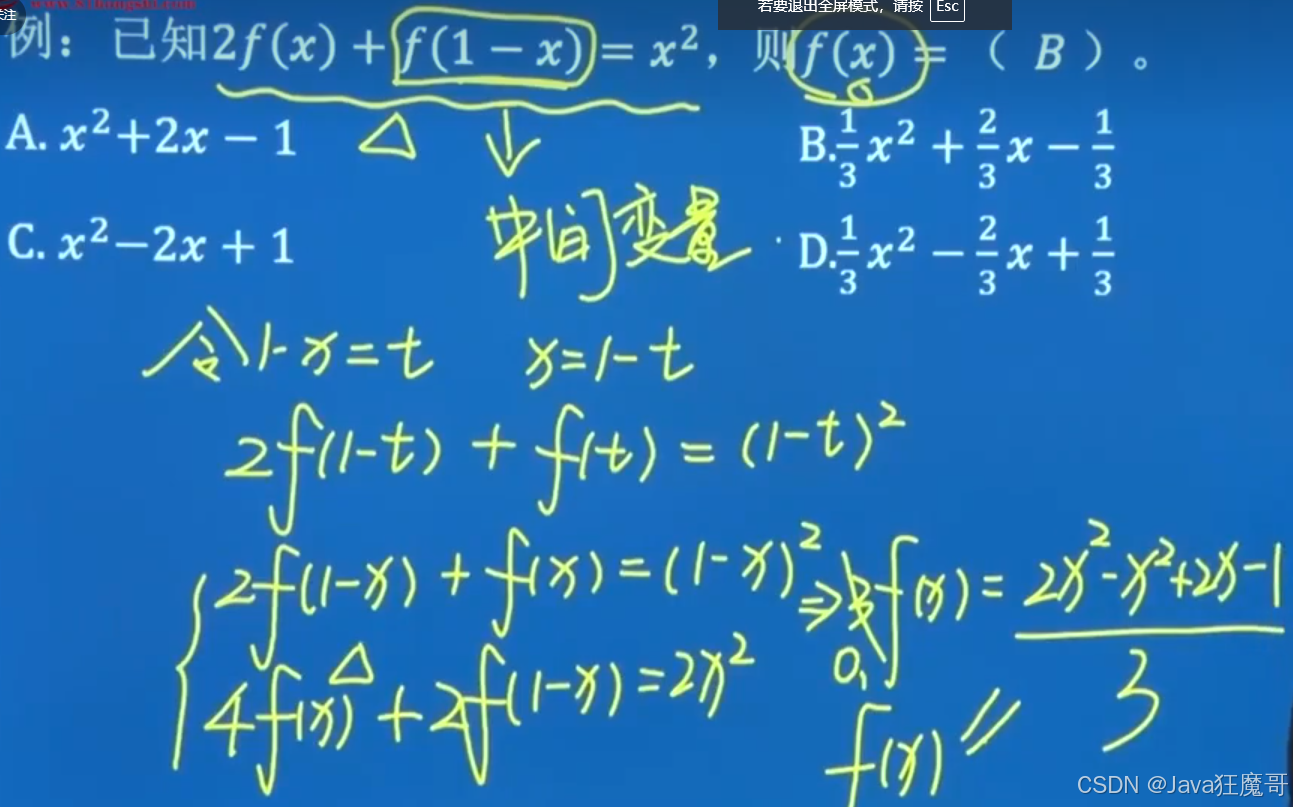 关注
若要退出全屏模式，请按 Esc
例：已知2f(x) + f(1 − x) = x²，则f(x) =（ B ）。
A. x²+2x − 1
B. 1/3 x² + 2/3 x − 1/3
中间变量
C. x²−2x + 1
D. 1/3 x² − 2/3 x + 1/3
令1-x=t x=1-t
2f(1-t) + f(t) = (1-t)²
2f(1-x) + f(x) = (1-x)² ⇒ f(x) = (2x²-x²+2x-1)/3
4f(x) + 2f(1-x) = 2x²
f(x)
CSDN @Java狂魔哥